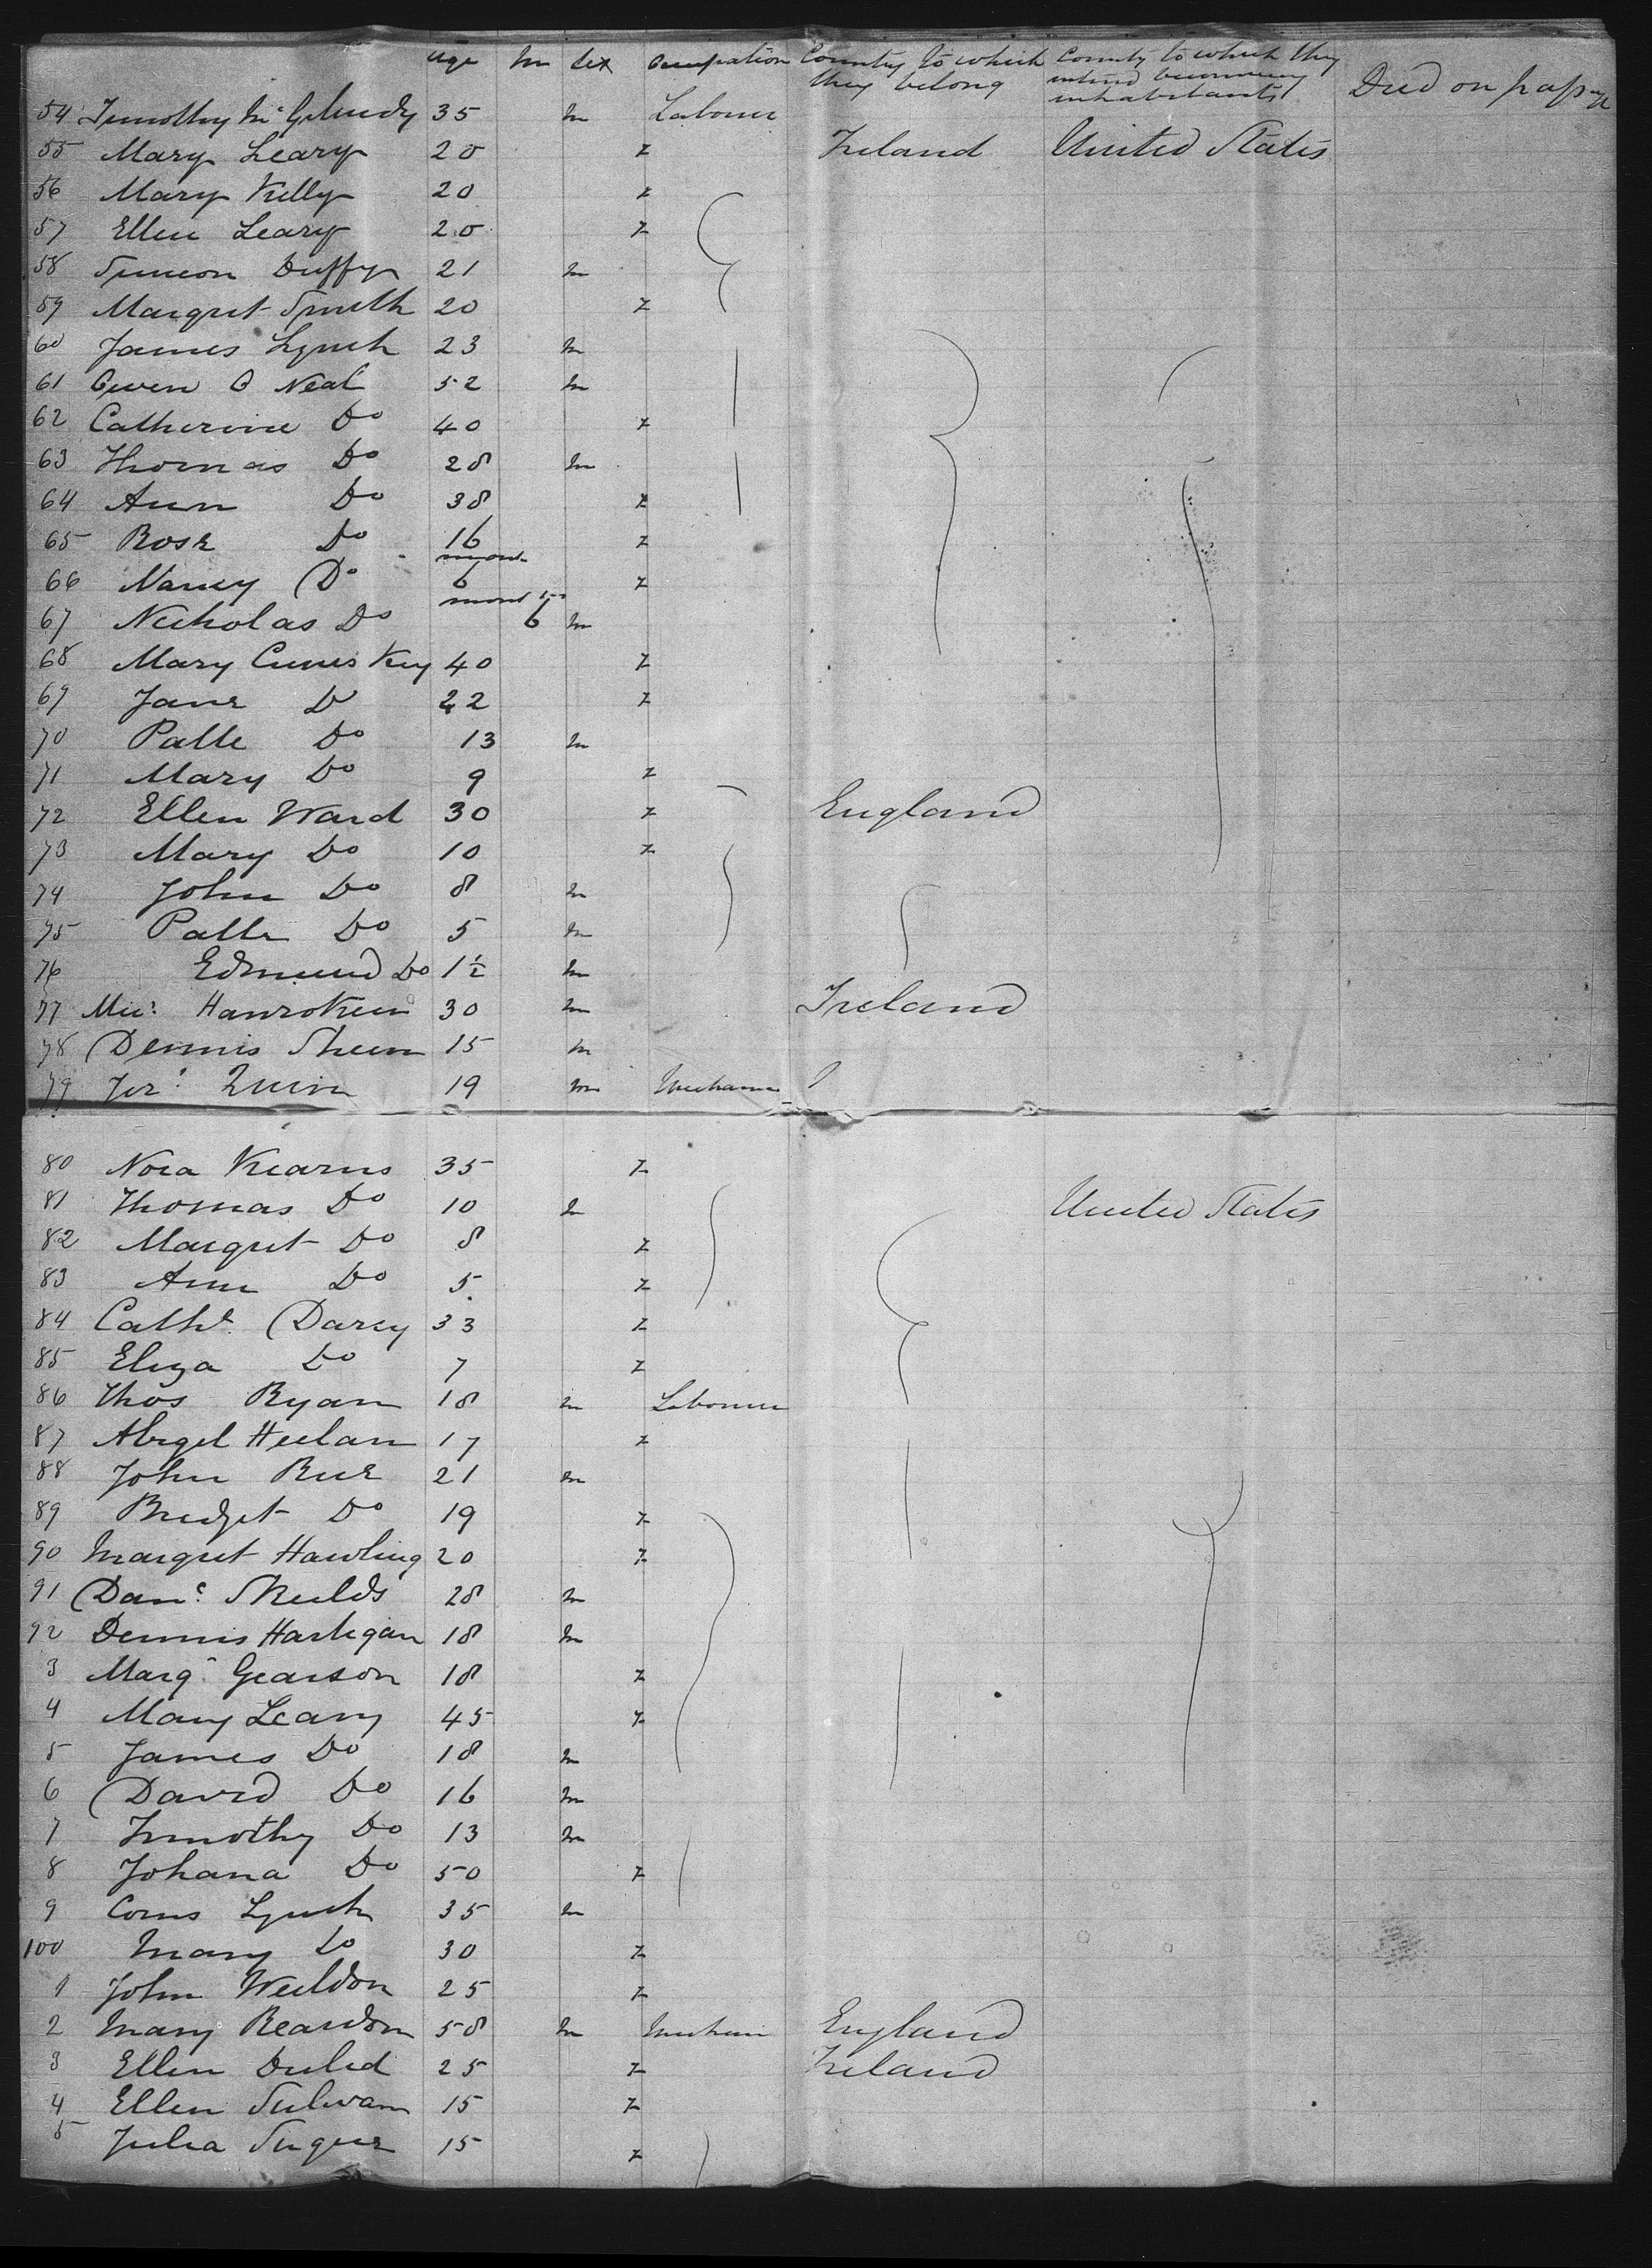 Age M Sex Occupation Country to which they belong Country to which they intend becoming inhabitants Died on passage
54 Timothy Mc 35 m Laborer
55 Mary Leary 20 f Ireland United States
56 Mary Kelly 20 f
57 Ellen Leary 20 f
58 Simeon Duffy 21 m
59 Margret Smith 20 f
60 James Lynch 23 m
61 Owen O Neal 52 m
62 Catherine Do 40 f
63 Thomas Do 28 m
64 Ann Do 38 f
65 Rose Do 16 f
66 Nancy Do 6 f
67 Nicholas Do 6 m
68 Mary Cumiskey 40 f
69 Jane D 22 f
70 Patk Do 13 m
71 Mary Do 9 f
72 Ellen Ward 30 f England
73 Mary Do 10 f
74 John Do 8 m
75 Patk Do 5 m
76 Edmund Do 1½ m
77 Mic: 30 m Ireland
78 Dennis Sheen 15 m
79 Jer: Quin 19 m Mechanic
80 Nora Kearns 35 f
81 Thomas Do 10 m United States
82 Margret Do 8 f
83 Ann Do 5 f
84 Cathe Darcy 33 f
85 Eliza Do 7 f
86 Thos Ryan 18 m Laborer
87 Abigel Heelan 17 f
88 John Rice 21 m
89 Bridget Do 19 f
90 Margret Hawling 20 f
91 Danl: Shields 28 m
92 Dennis Hartigan 18 m
3 Marg. Gearson 18 f
4 Mary Leary 45 f
5 James Do 18 m
6 David Do 16 m
7 Timothy Do 13 m
8 Johana Do 50 f
9 Corns Lynch 35 m
100 Mary Do 30 f
1 John Weldon 25 f
2 Mary Reardon 58 m Mechanic England
3 Ellen 25 f Ireland
4 Ellen Sulivan 15 f
5 Julia 15 f